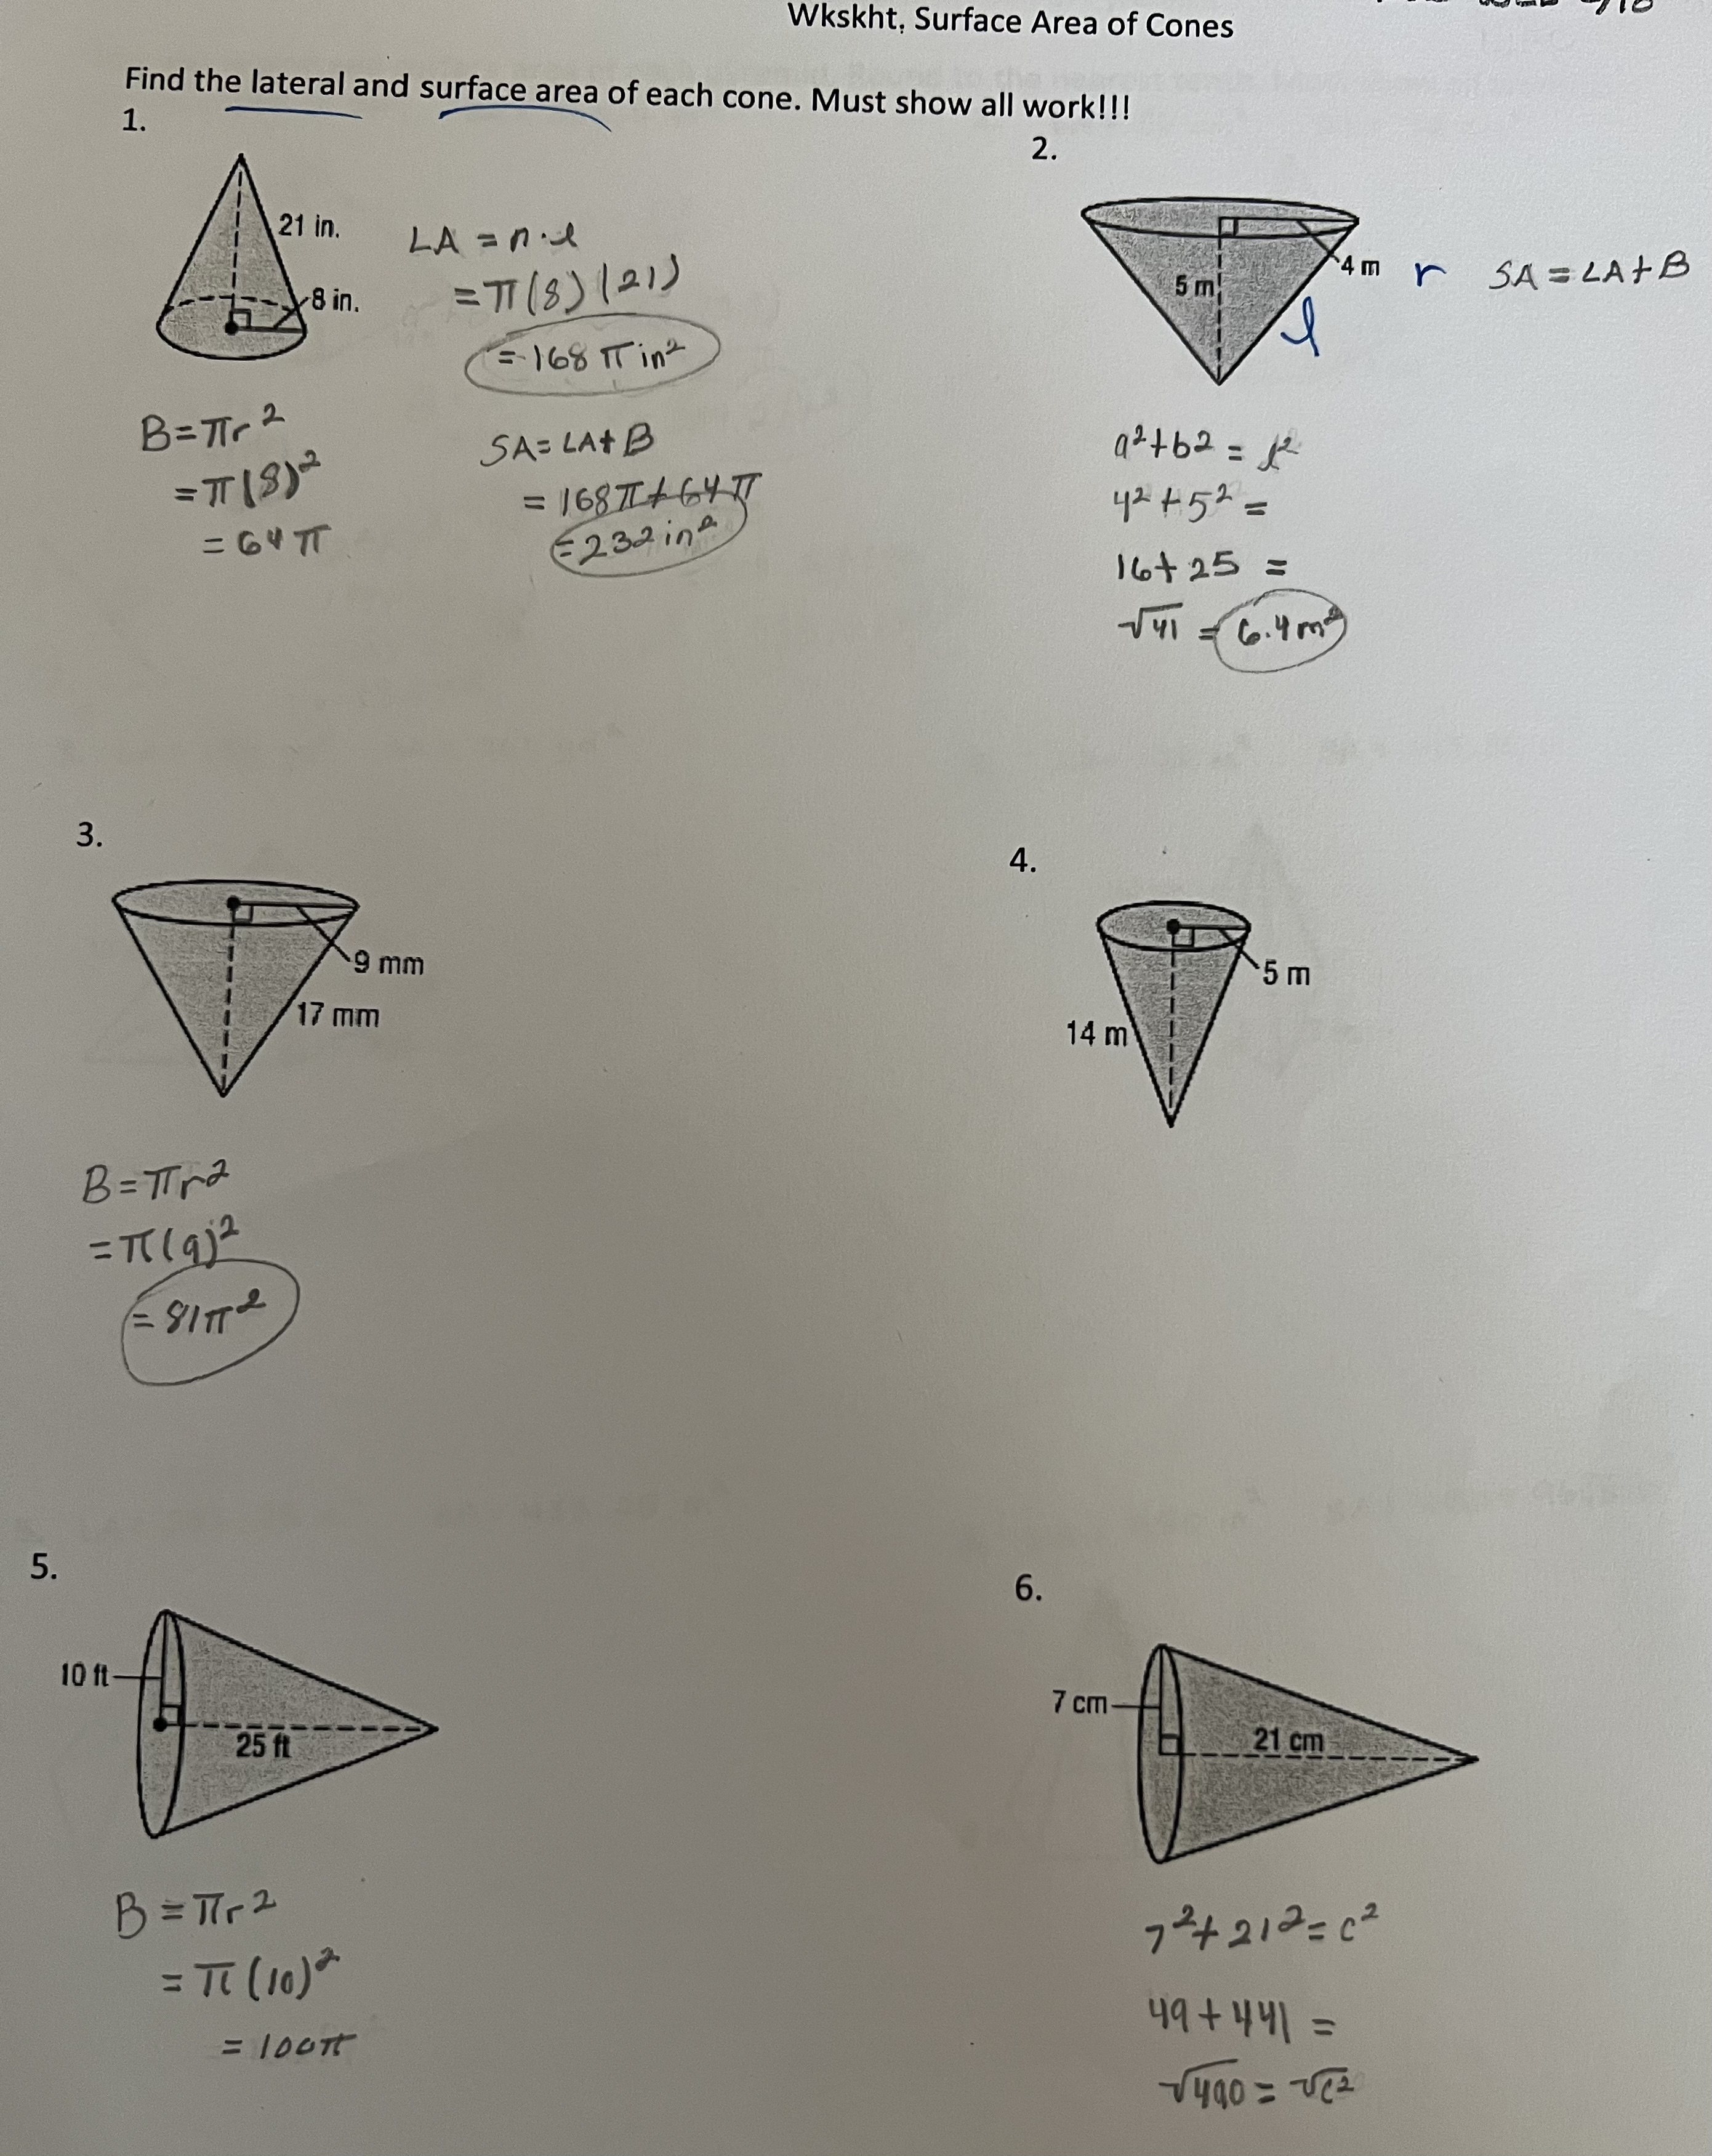 Wkskht, Surface Area of Cones
Find the lateral and surface area of each cone. Must show all work!!!
1.
21 in.
8 in.
LA = π·l
= π(8)(21)
= 168 π in²
B = πr²
= π(8)²
= 64 π
SA = LA + B
= 168π + 64π
= 232 in²
2.
5 m
4 m r
l
SA = LA + B
a² + b2 = l²
4² + 5² =
16 + 25 =
√41 = 6.4 m²
3.
9 mm
17 mm
B = πr²
= π(9)²
= 81π²
4.
5 m
14 m
5.
10 ft
25 ft
B = πr²
= π(10)²
= 100π
6.
7 cm
21 cm
7² + 21² = c²
49 + 441 =
√490 = √c²